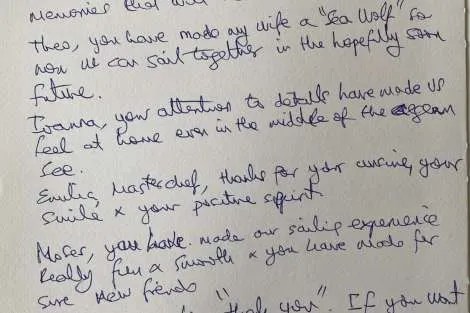 memories that will
Theo, you have made my wife a "Sea Wolf" so
now we can sail together in the hopefully soon
future.
Ioanna, your attention to details have made us
feel at home even in the middle of the egean
See.
Emilie, Masterchef, thanks for your cuisine, your
smile & your positive spirit
Moser, you have. made our sailing experience
really fun & smooth & you have made for
sure new friends
"thank you". If you want